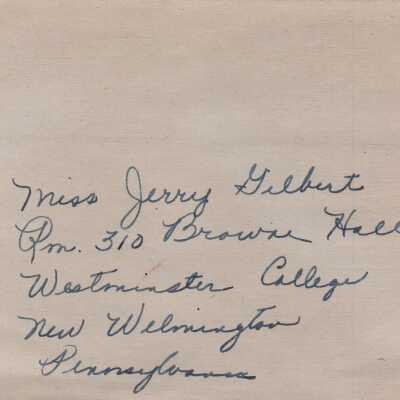 Miss Jerry Gilbert
Rm. 310 Browne Hall
Westminster College
New Wilmington
Pennsylvania